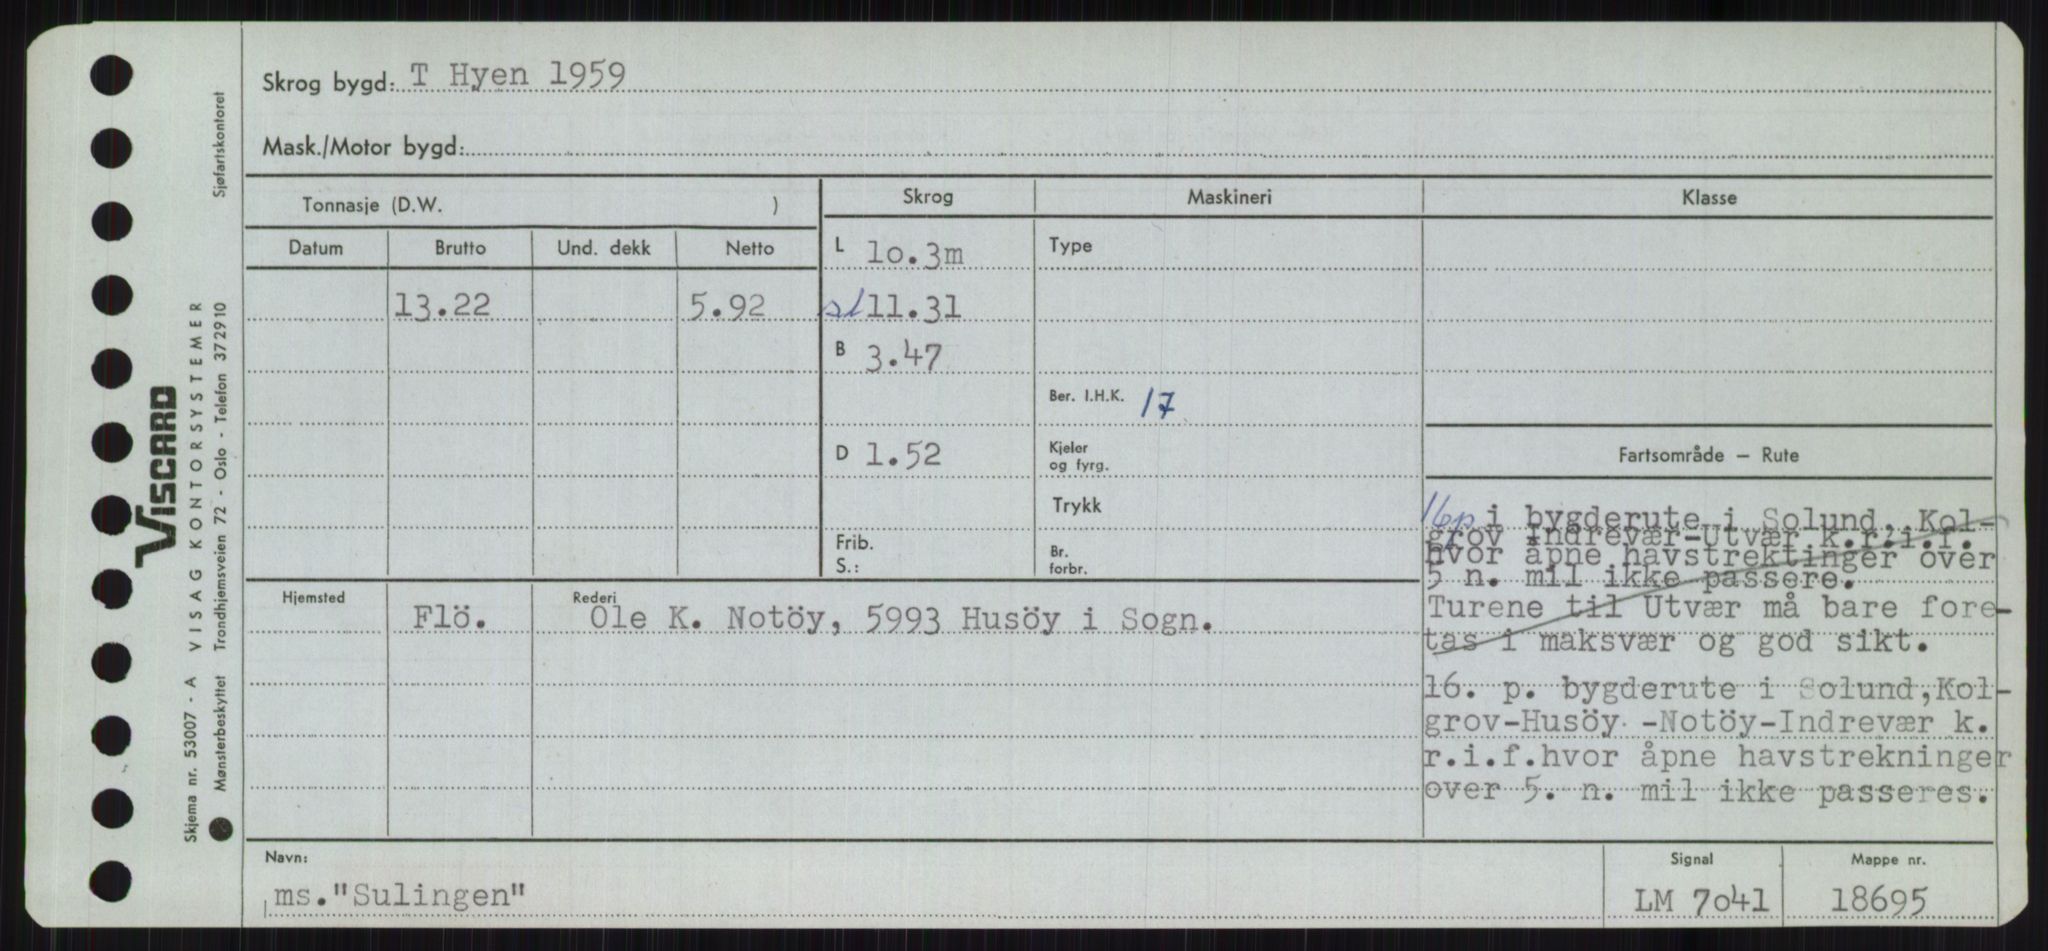 Skrog bygd: T Hyen 1959
Mask./Motor bygd:
Tonnasje (D.W. )
Skrog
Maskineri
Klasse
Datum Brutto Und. dekk Netto
L 10.3m
Type
13.22 5.92
sl 11.31
B 3.47
Ber. I.H.K. 17
D 1.52
Kjeler og fyrg.
Trykk
Frib.
S.:
Br. forbr.
Fartsområde – Rute
16p i bygderute i Solund, Kol-
grov Indrevær-Utvær k.r.i.f.
hvor åpne havstrektinger over
5 n. mil ikke passere.
Turene til Utvær må bare fore-
tas i maksvær og god sikt.
16. p. bygderute i Solund,Kol-
grov-Husöy -Notöy-Indrevær k.
r.i.f.hvor åpne havstrekninger
over 5. n. mil ikke passeres.
Hjemsted Rederi
Flö. Ole K. Notöy, 5993 Husöy i Sogn.
Navn:
ms."Sulingen"
Signal
LM 7041
Mappe nr.
18695
VISCARD
VISAG KONTORSYSTEMER
Skjema nr. 53007 - A
Mønsterbeskyttet Trondhjemsveien 72 - Oslo - Telefon 372910 Sjøfartskontoret